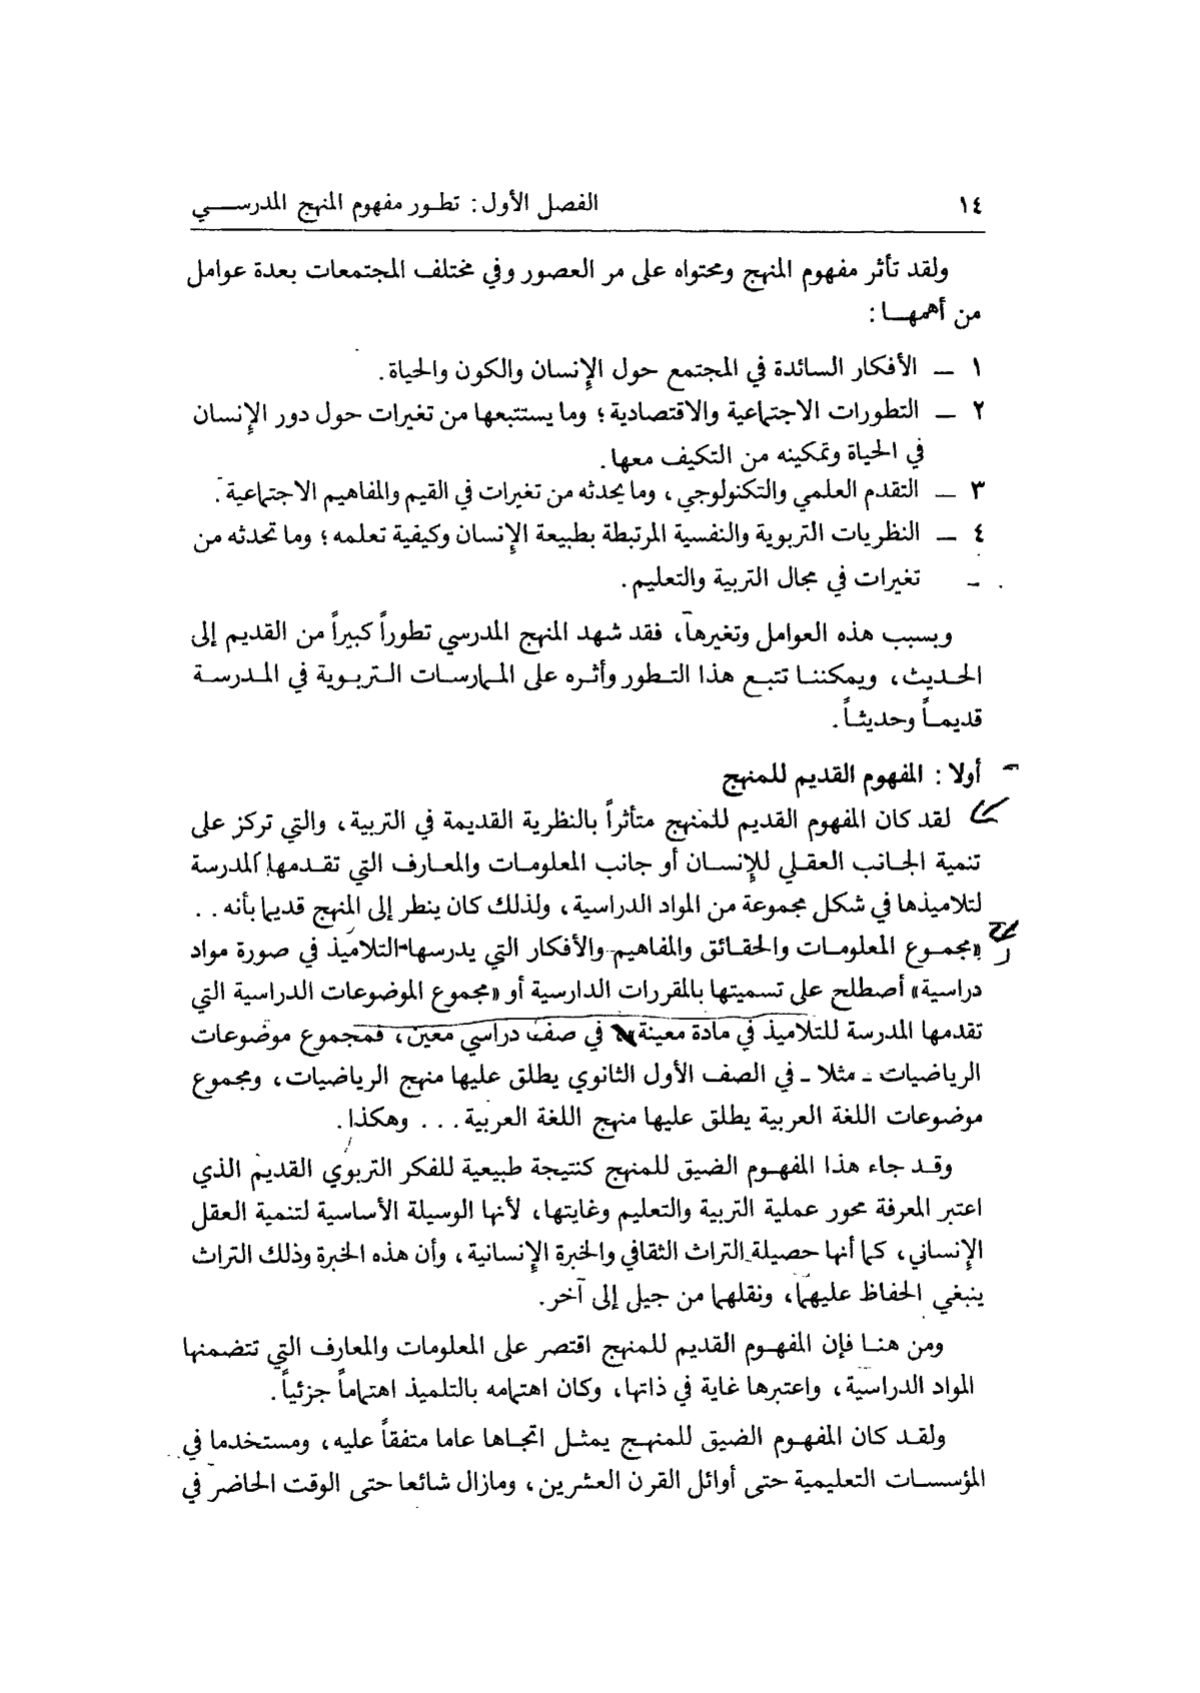 ١٤ الفصل الأول: تطور مفهوم المنهج المدرسي
ولقد تأثر مفهوم المنهج ومحتواه على مر العصور وفي مختلف المجتمعات بعدة عوامل
من أهمها:
١ ـ الأفكار السائدة في المجتمع حول الإنسان والكون والحياة.
٢ ـ التطورات الاجتماعية والاقتصادية؛ وما يستتبعها من تغيرات حول دور الإنسان
في الحياة وتمكينه من التكيف معها.
٣ ـ التقدم العلمي والتكنولوجي، وما يحدثه من تغيرات في القيم والمفاهيم الاجتماعية.
٤ ـ النظريات التربوية والنفسية المرتبطة بطبيعة الإنسان وكيفية تعلمه؛ وما تحدثه من
تغيرات في مجال التربية والتعليم.
وبسبب هذه العوامل وتغيرها، فقد شهد المنهج المدرسي تطوراً كبيراً من القديم إلى
الحديث، ويمكننا تتبع هذا التطور وأثره على الممارسات التربوية في المدرسة
قديماً وحديثاً.
أولا: المفهوم القديم للمنهج
لقد كان المفهوم القديم للمنهج متأثراً بالنظرية القديمة في التربية، والتي تركز على
تنمية الجانب العقلي للإنسان أو جانب المعلومات والمعارف التي تقدمها المدرسة
لتلاميذها في شكل مجموعة من المواد الدراسية، ولذلك كان ينطر إلى المنهج قديما بأنه..
«مجموع المعلومات والحقائق والمفاهيم والأفكار التي يدرسها التلاميذ في صورة مواد
دراسية» أصطلح على تسميتها بالمقررات الدارسية أو «مجموع الموضوعات الدراسية التي
تقدمها المدرسة للتلاميذ في مادة معينة» في صف دراسي معين، فمجموع موضوعات
الرياضيات ـ مثلا ـ في الصف الأول الثانوي يطلق عليها منهج الرياضيات، ومجموع
موضوعات اللغة العربية يطلق عليها منهج اللغة العربية... وهكذا.
وقد جاء هذا المفهوم الضيق للمنهج كنتيجة طبيعية للفكر التربوي القديم الذي
اعتبر المعرفة محور عملية التربية والتعليم وغايتها، لأنها الوسيلة الأساسية لتنمية العقل
الإنساني، كما أنها حصيلة التراث الثقافي والخبرة الإنسانية، وأن هذه الخبرة وذلك التراث
ينبغي الحفاظ عليهما، ونقلهما من جيل إلى آخر.
ومن هنا فإن المفهوم القديم للمنهج اقتصر على المعلومات والمعارف التي تتضمنها
المواد الدراسية، واعتبرها غاية في ذاتها، وكان اهتمامه بالتلميذ اهتماماً جزئياً.
ولقد كان المفهوم الضيق للمنهج يمثل اتجاها عاما متفقاً عليه، ومستخدما في
المؤسسات التعليمية حتى أوائل القرن العشرين، ومازال شائعا حتى الوقت الحاضر في